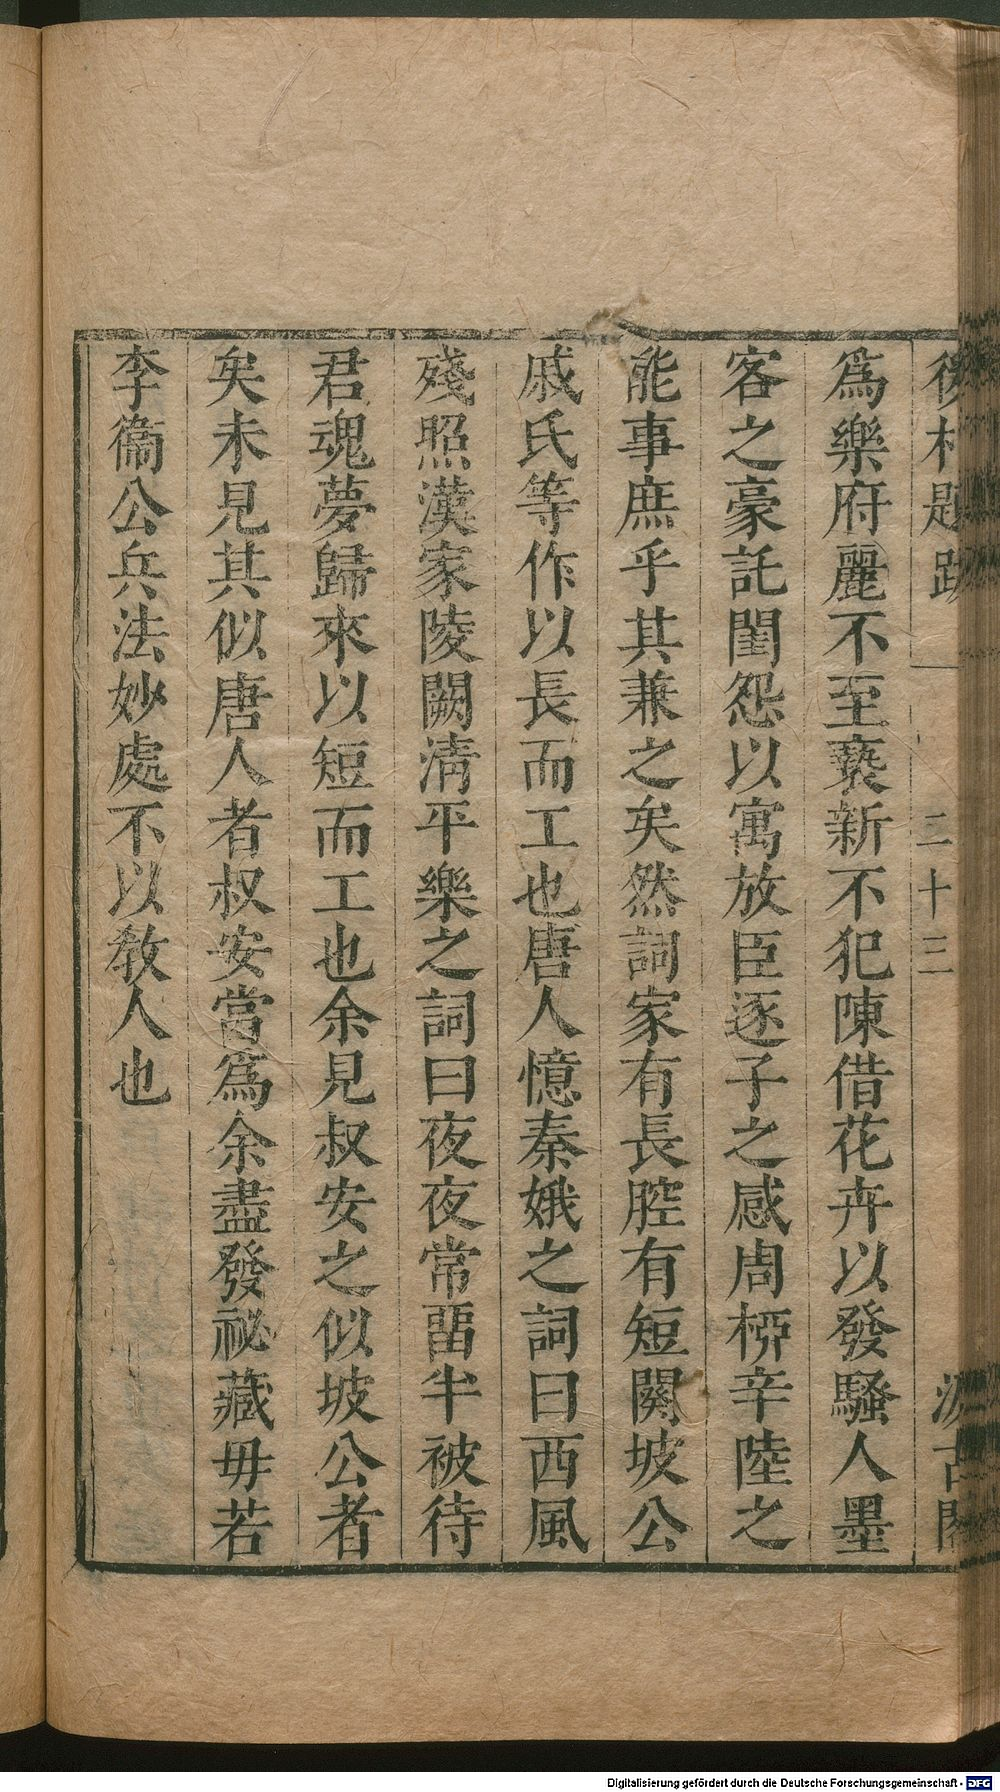 後村題跋 二十三 汲古閣
爲樂府麗不至褻新不犯陳借花卉以發騷人墨
客之豪託閨怨以寓放臣逐子之感周柳辛陸之
能事庶乎其兼之矣然詞家有長腔有短闋坡公
戚氏等作以長而工也唐人憶秦娥之詞曰西風
殘照漢家陵闕淸平樂之詞曰夜夜常畱半被待
君魂夢歸來以短而工也余見叔安之似坡公者
矣未見其似唐人者叔安當爲余盡發祕藏毋若
李衞公兵法妙處不以敎人也
Digitalisierung gefördert durch die Deutsche Forschungsgemeinschaft - DFG